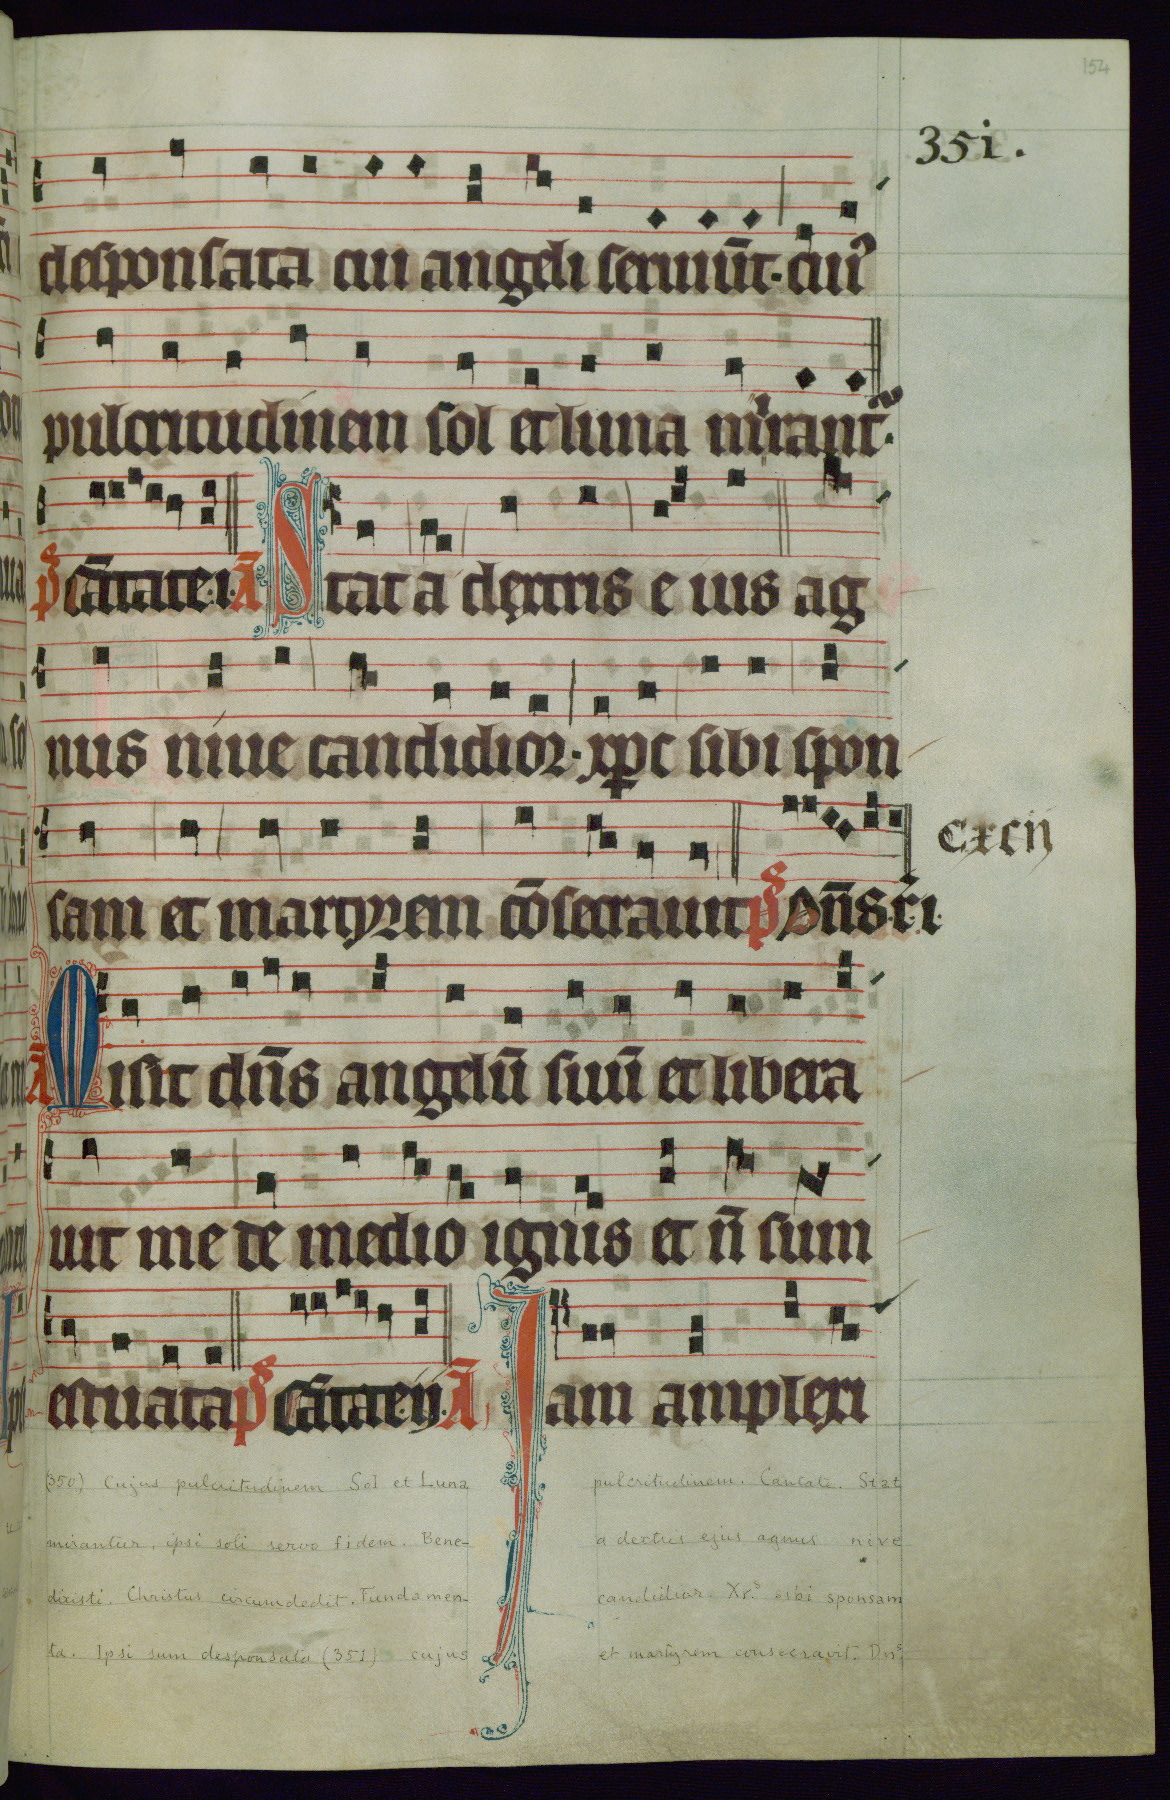 154
35i.
desponsata cui angeli seruiūt. cuiꝰ
pulcritudinem sol et luna mirant᷑.
p̄s cātate.i. Ā Stat a dextris e ius ag
nus niue candidior. xp̄c sibi spon
sam et martyrem cōsecrauit p̄s Dn̄s.r̄.i.
cxcij
Ā Misit dn̄s angelū suū et libera
uit me de medio ignis et n̄ sum
estuata p̄s Cātate.ij. Ā Iam amplexi
(350) Cujus pulcritudinem Sol et Luna
mirantur, ipsi soli servo fidem. Bene-
dixisti. Christus circumdedit. Fundamen-
ta. Ipsi sum desponsata (351) cujus
pulcritudinem. Cantate. Stat
a dextris ejus agnus nive
candidior. Xr.s sibi sponsam
et martyrem consecravit. Dns